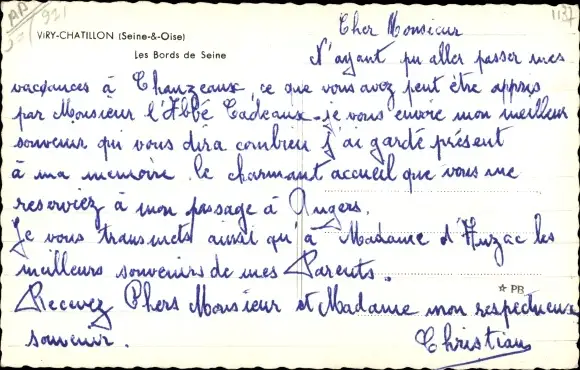 AP 91
1137
VIRY-CHATILLON (Seine-&-Oise)
Les Bords de Seine
Cher Monsieur
N'ayant pu aller passer mes
vacances à Chanzeaux, ce que vous avez peut être appris
par Monsieur l'Abbé Cadeaux - je vous envoie mon meilleur
souvenir qui vous dira combien j'ai gardé présent
à ma mémoire le charmant accueil que vous me
reserviez à mon passage à Angers.
Je vous transmets aussi qu'à Madame d'Huzac les
meilleurs souvenirs de mes Parents.
☆ PB
Recevez Chers Monsieur et Madame mon respectueux
souvenir.
Christian